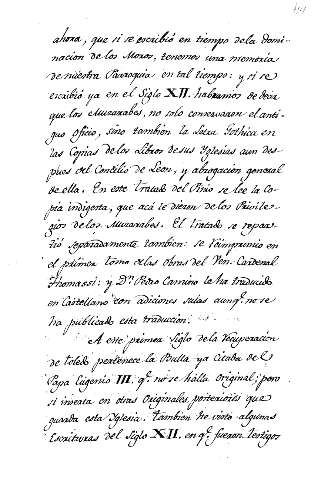 ahora, que si se escribió en tiempo dela Domi-
nacion de los Moros, tenemos una memoria
de nuestra Parroquia en tal tiempo: y si se
escribió ya en el Siglo XII. habramos de decir
que los Muzarabes, no solo conservaron el anti-
guo oficio, sino tambien la Letra Gothica en
las Copias de los Libros de sus Yglesias aun des-
pues del Concilio de Leon, y abrogacion general
de ella. En este tratado del Pinio se lee la Co-
pia indigesta, que acá le dieron de los Privile-
gios de los Muzarabes. El tratado se repar-
tió separadamente tambien: se reimprimio en
el primer tomo de las obras del Ven. Cardenal
Thomassi: y Dn. Pedro Camino le ha traducido
en Castellano con adiciones suias aunq. no se
ha publicado esta traduccion.
A este primer Siglo de la recuperacion
de Toledo pertenece la Bulla ya citada de el
Papa Eugenio III. q. no se halla original; pero
si inserta en otras Originales posteriores que
guarda esta Iglesia. Tambien he visto algunas
Escrituras del Siglo XII. en q. fueron testigos